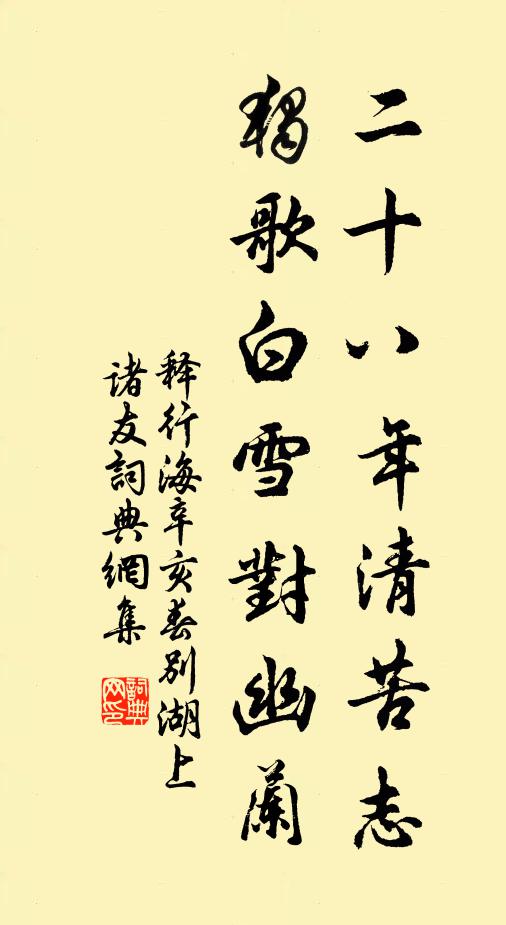 二十八年清苦志
獨歌白雪對幽蘭
释行海辛亥春别湖上
诸友詞典網集
詞典网印